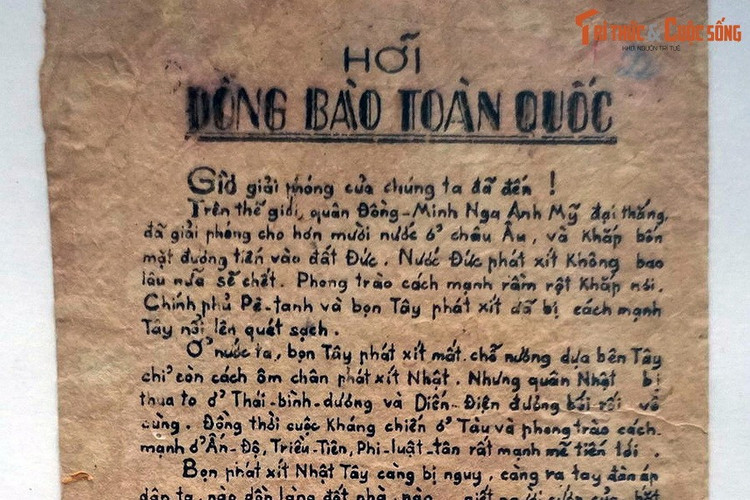 TRI THỨC & CUỘC SỐNG
HỠI
ĐỒNG BÀO TOÀN QUỐC
Giờ giải phóng của chúng ta đã đến !
Trên thế giới, quân Đồng-Minh Nga Anh Mỹ đại thắng,
đã giải phóng cho hơn mười nước ở châu Âu, và khắp bốn
mặt đương tiến vào đất Đức. Nước Đức phát xít không bao
lâu nữa sẽ chết. Phong trào cách mạnh rầm rột khắp nơi.
Chính phủ Pê-tanh và bọn Tây phát xít đã bị cách mạnh
Tây nổi lên quét sạch.
Ở nước ta, bọn Tây phát xít mất chỗ nương dựa bên Tây
chỉ còn cách ôm chân phát xít Nhật. Nhưng quân Nhật bị
thua to ở Thái-bình-dương và Diến-Điện đương bối rối vô
cùng. Đồng thời cuộc kháng chiến ở Tàu và phong trào cách-
mạnh ở Ấn-Độ, Triều-Tiên, Phi-luật-tân rất mạnh mẽ tiến tới.
Bọn phát xít Nhật Tây càng bị nguy, càng ra tay đàn áp
dân ta, nào dồn làng đốt nhà, nào